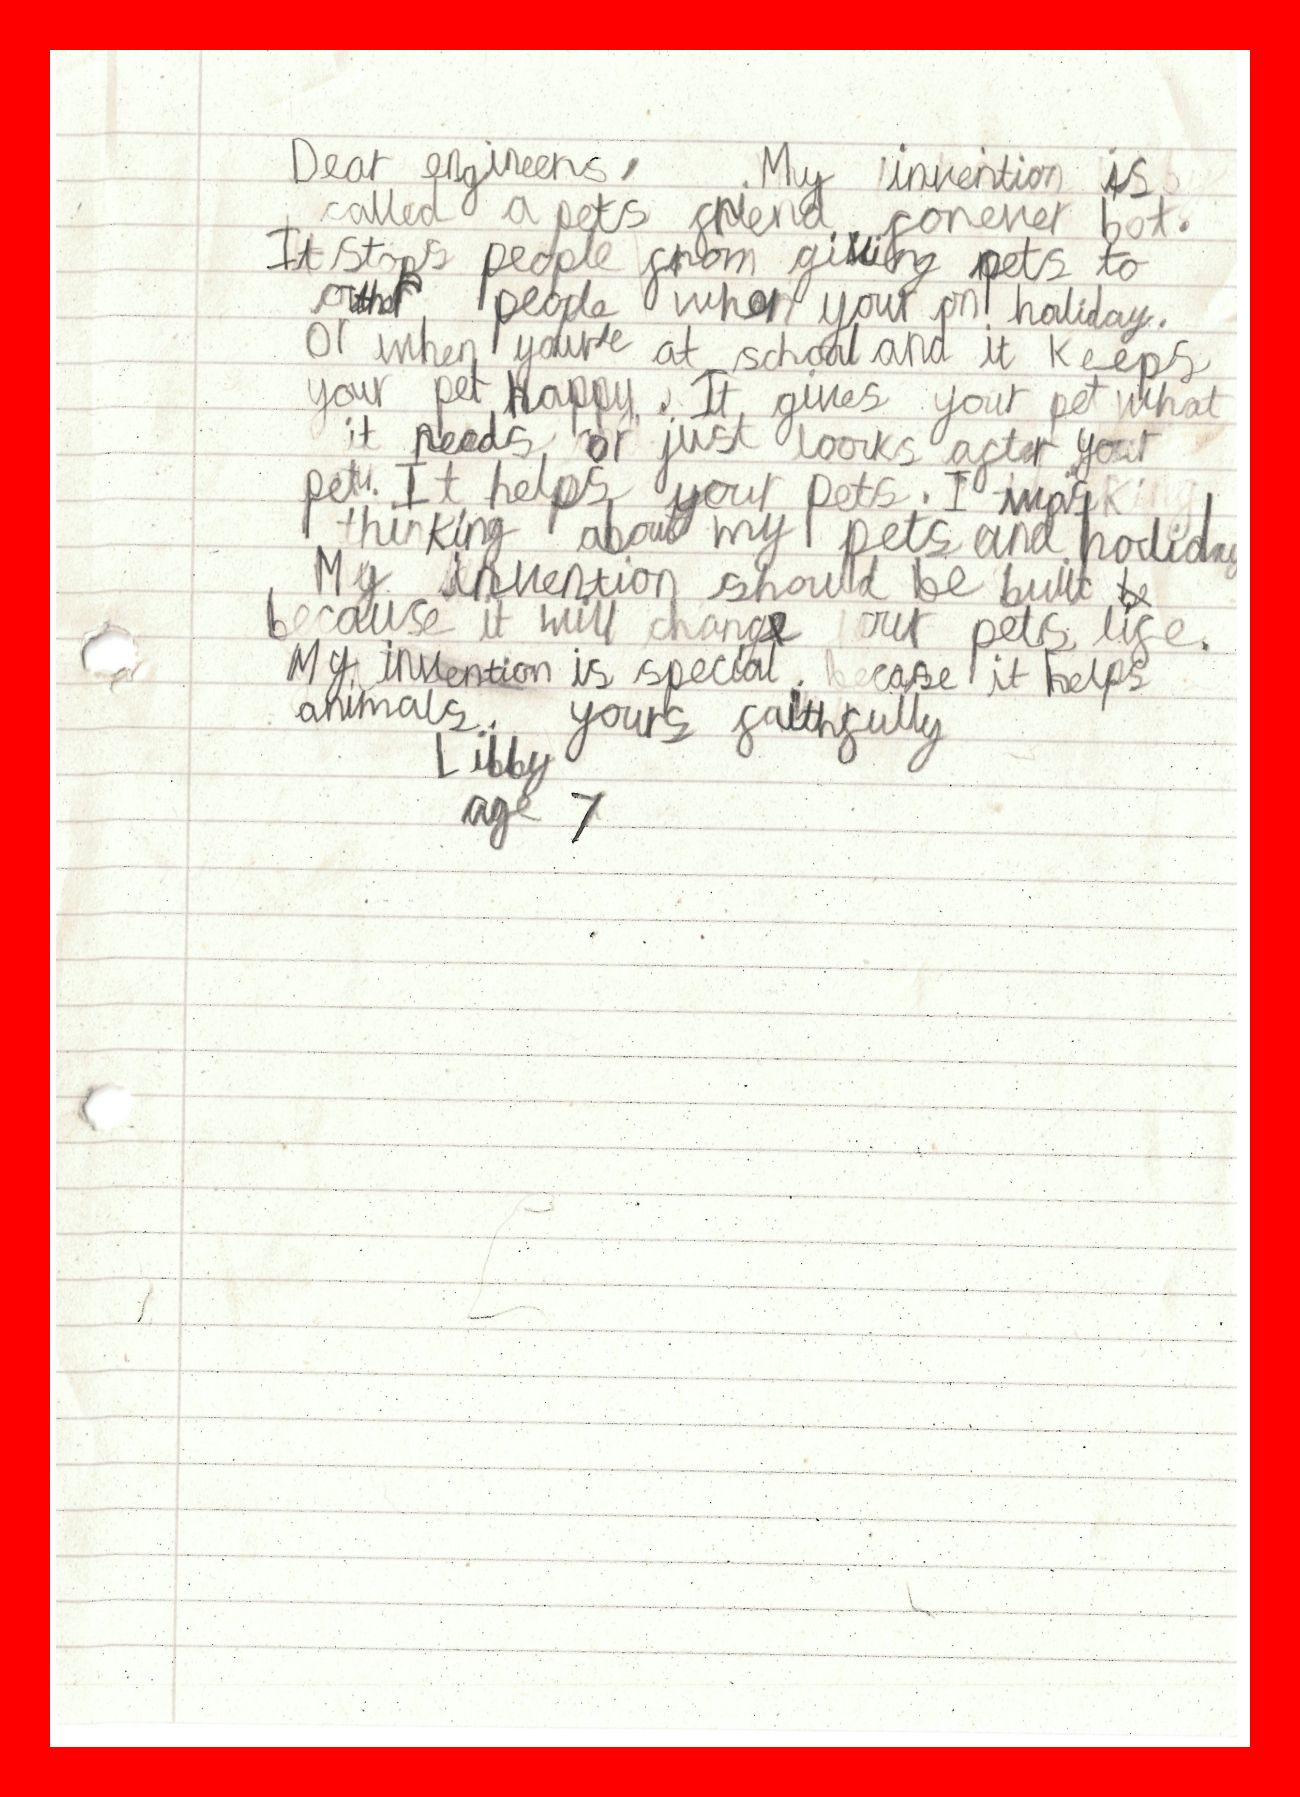 Dear engineers, My invention is
called a pets friend forever bot.
It stops people from giving pets to
other people when your on holiday.
Or when you're at school and it keeps
your pet happy. It gives your pet what
it needs or just looks after your
pet. It helps your pets. I was
thinking about my pets and holiday
My invention should be built be
because it will change our pets life.
My invention is special. becase it helps
animals. yours faithfully
Libby
age 7